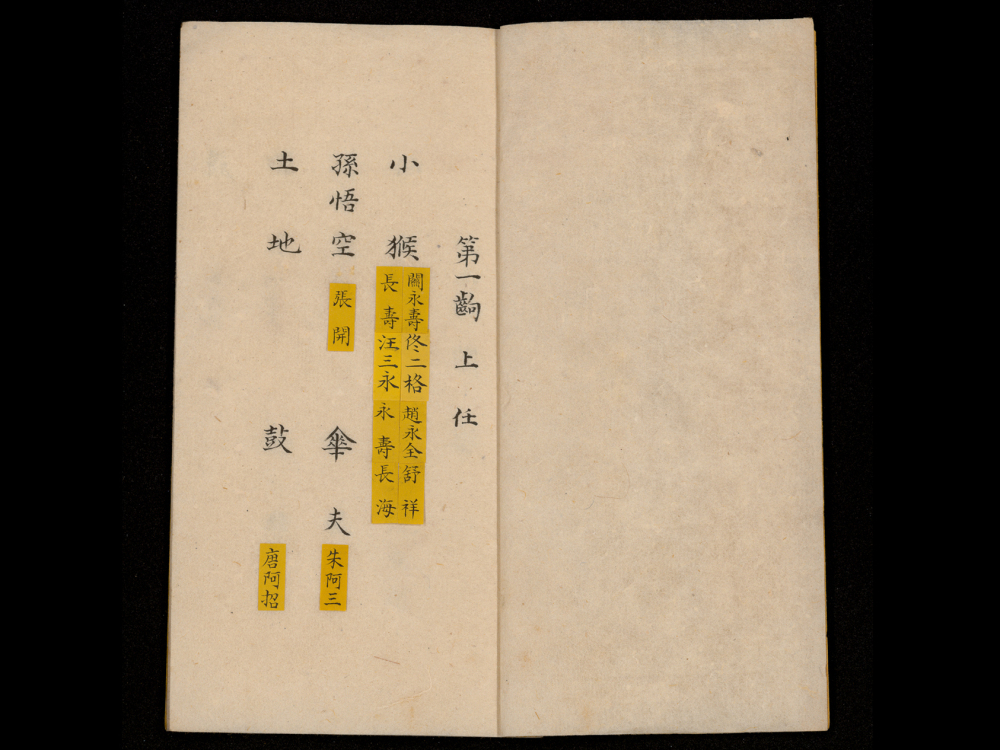 第一齣 上任
小猴
關永壽 佟二格 趙永全 舒祥
長壽 汪三永 永壽 長海
孫悟空 張開 傘夫 朱阿三
土地 鼓 唐阿招